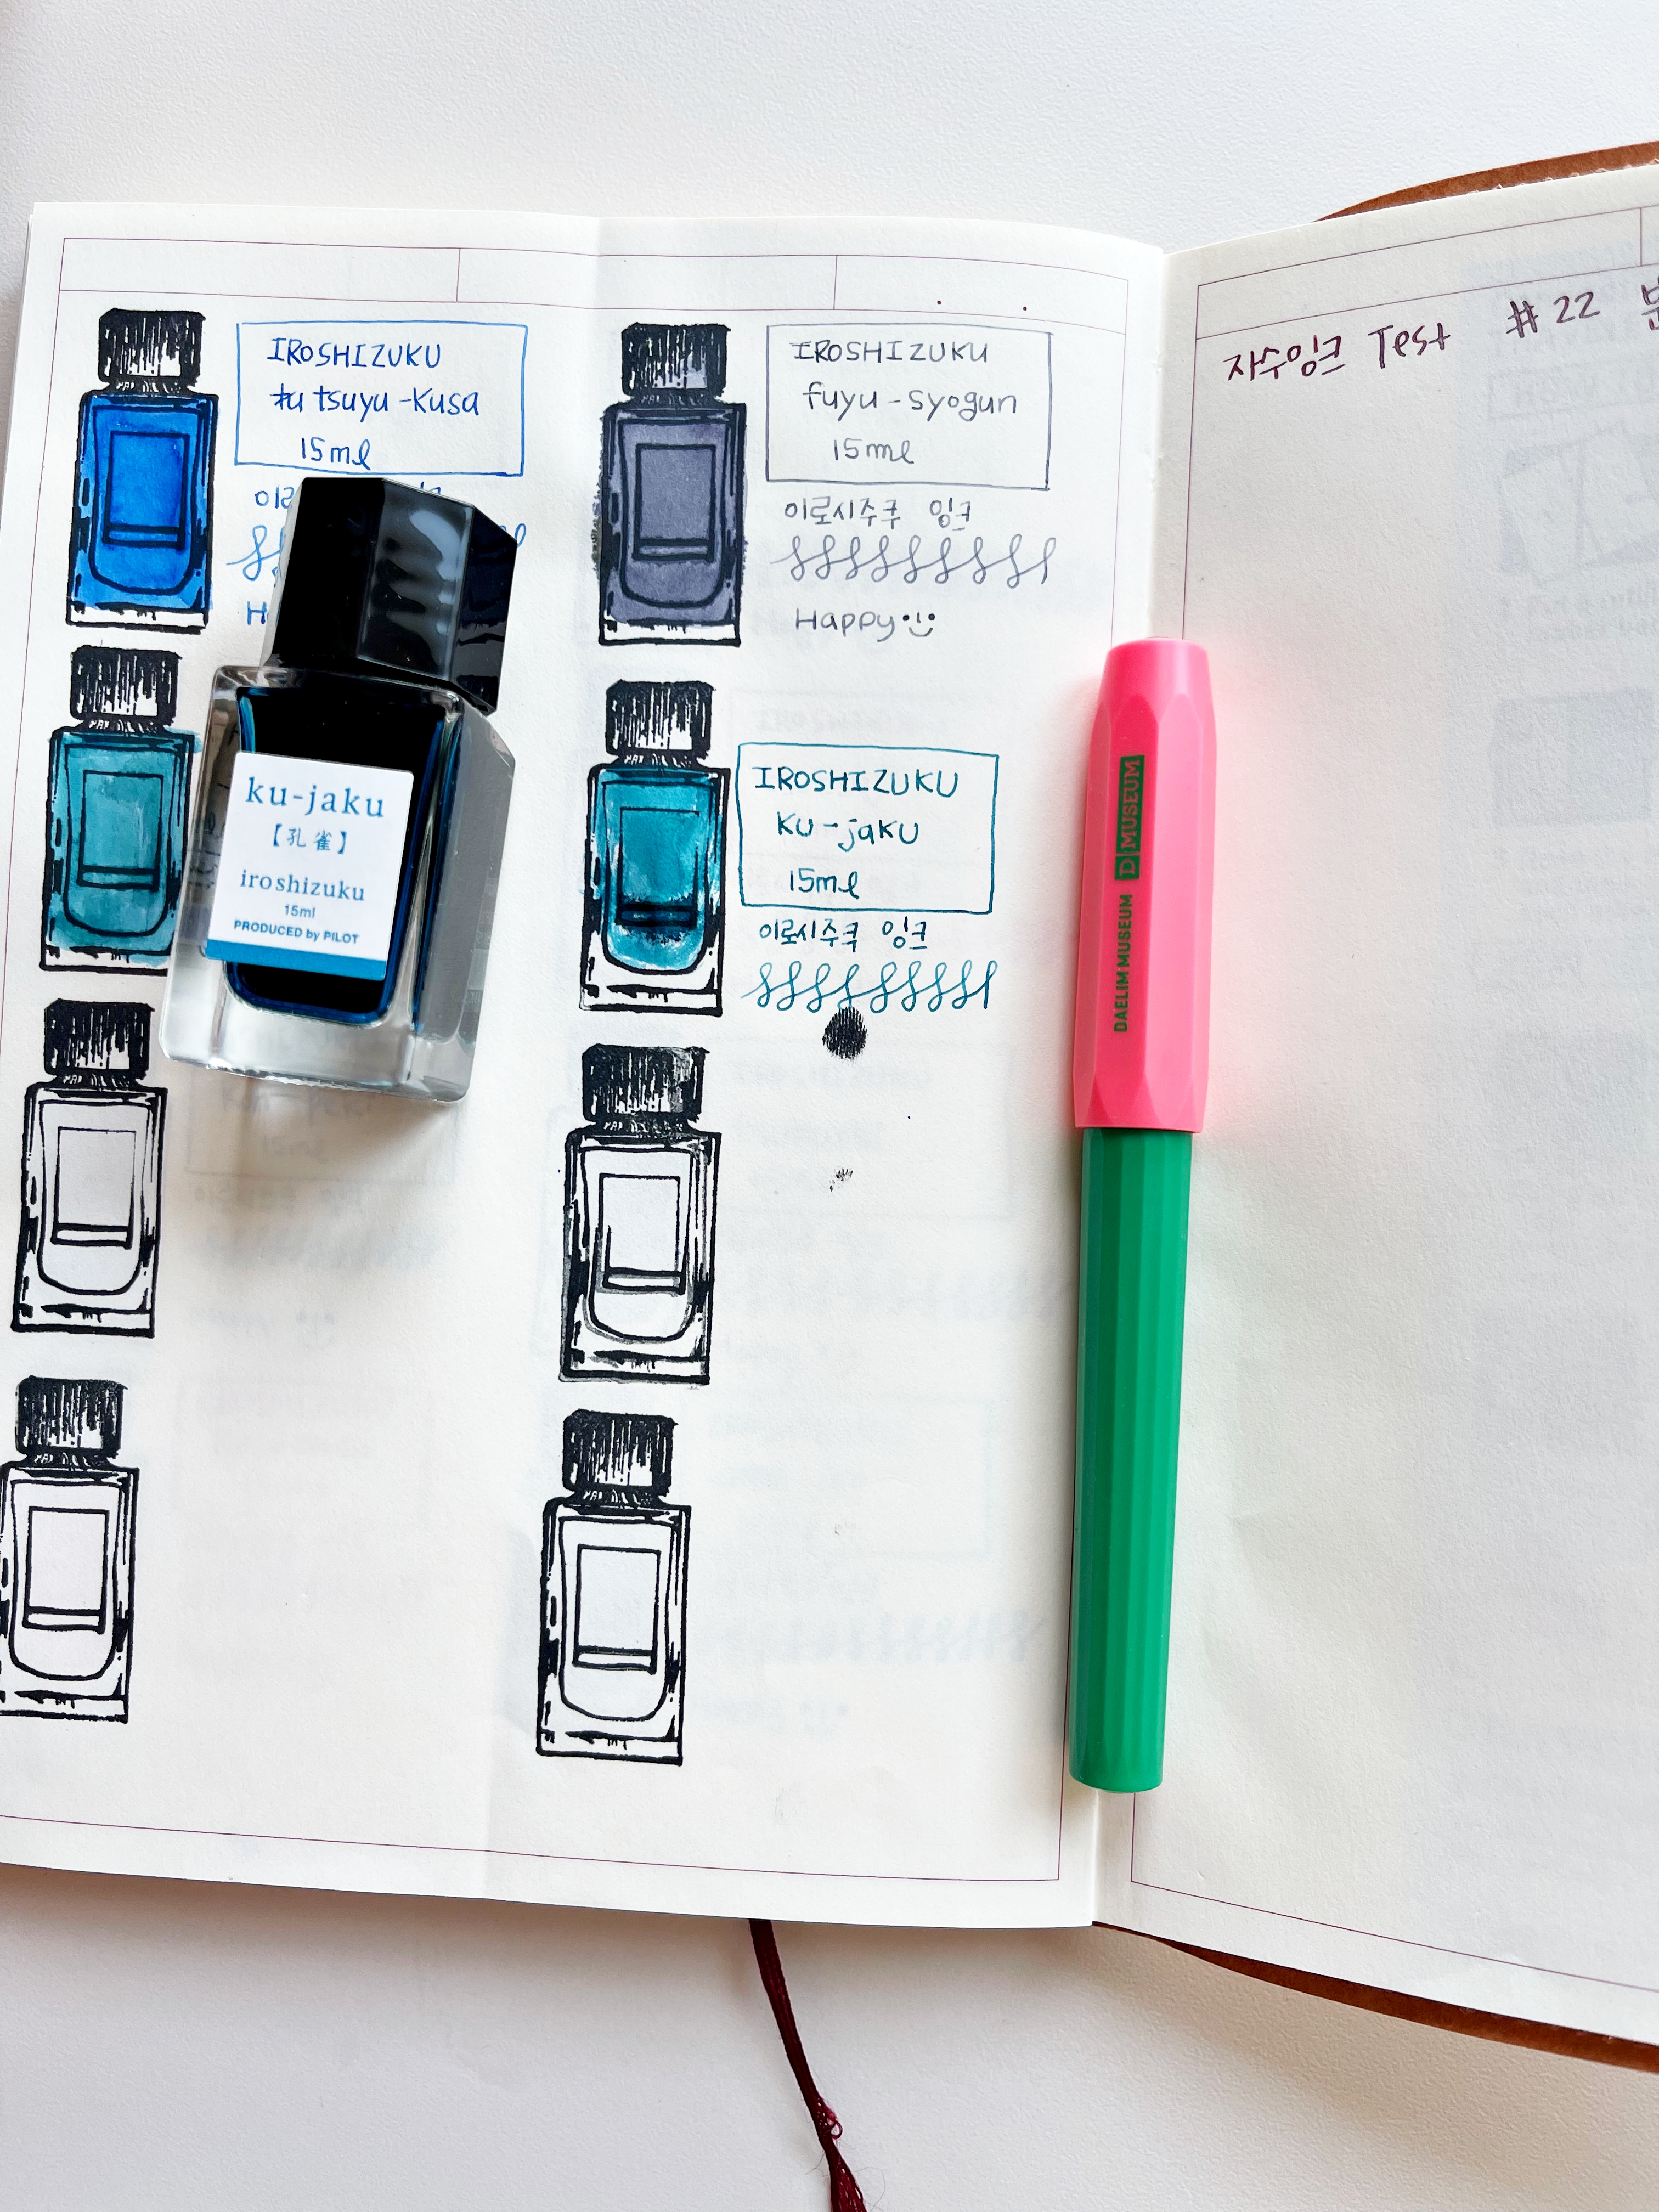 IROSHIZUKU
tsuyu-kusa
15ml
IROSHIZUKU
fuyu-syogun
15ml
이로시주쿠 잉크
Happy
ku-jaku
【孔雀】
iroshizuku
15ml
PRODUCED by PILOT
IROSHIZUKU
ku-jaku
15ml
이로시주쿠 잉크
DAELIM MUSEUM D MUSEUM
자수잉크 Test #22